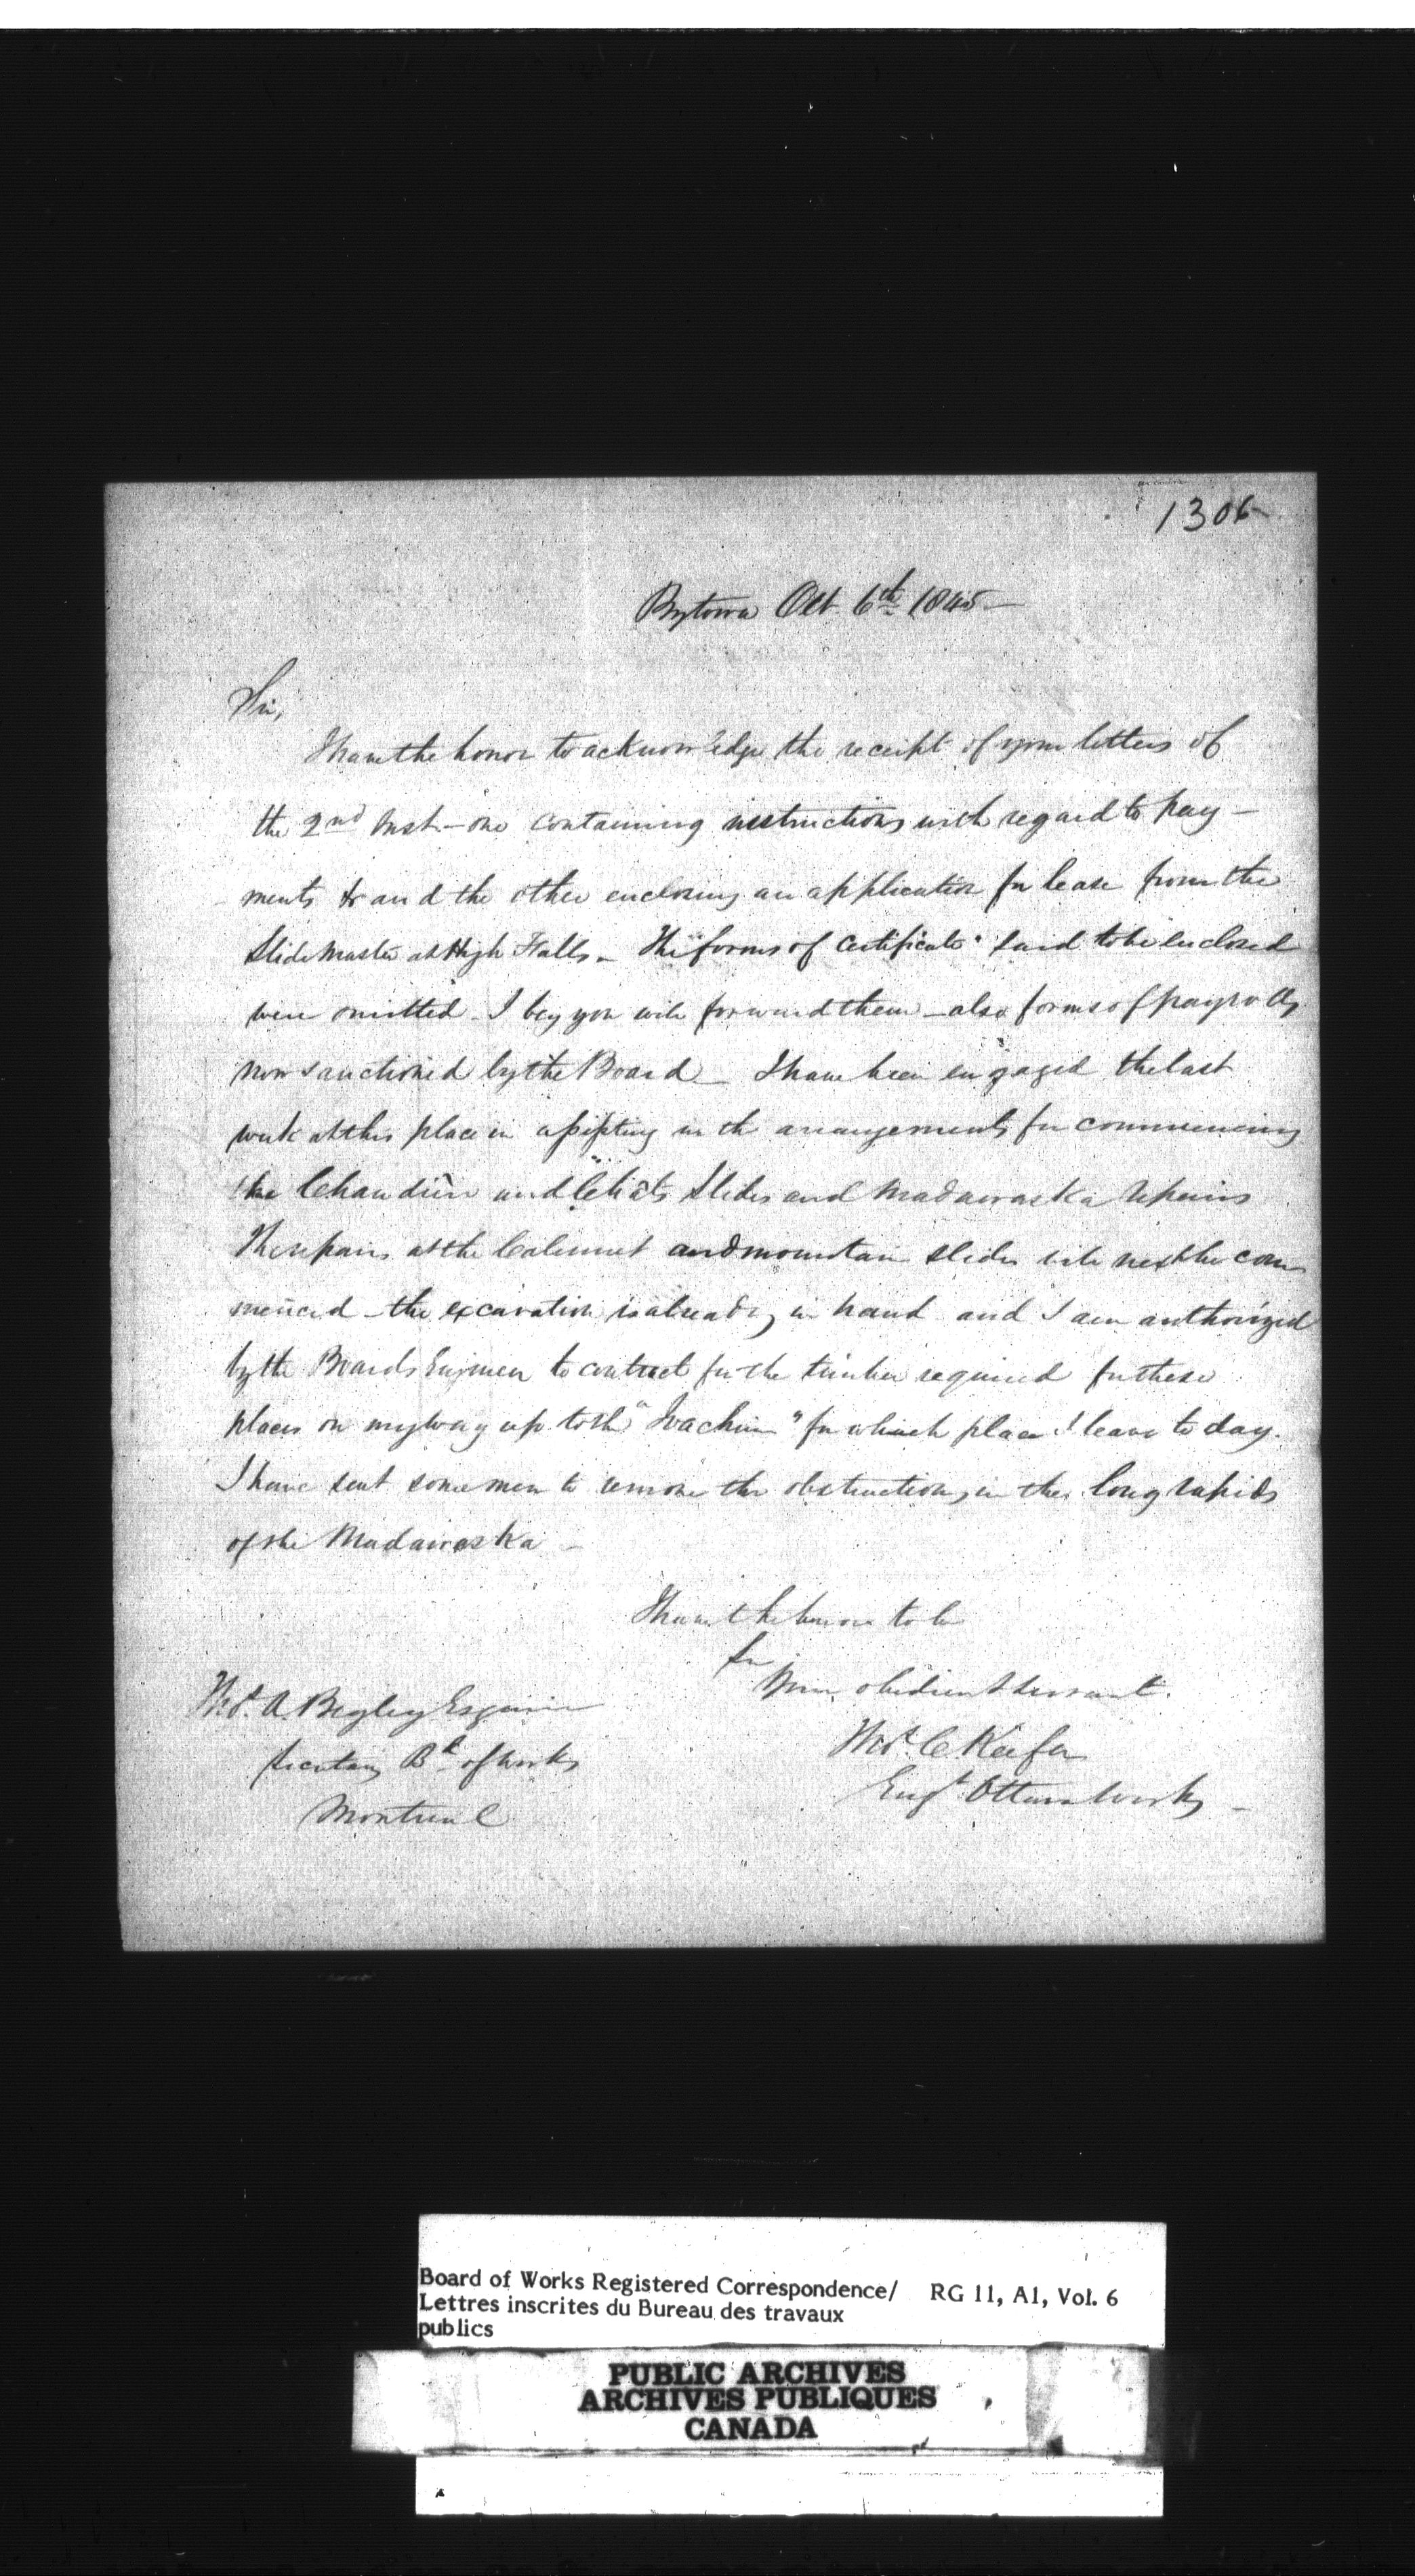 1306
Bytown Oct 6th 1845
Sir,
I have the honor to acknowledge the receipt of your letters of
the 2nd Inst - one containing instructions with regard to pay-
ments & and the other enclosing an application for lease from the
Slide Master at High Falls - The forms of "Certificate" said to be enclosed
were omitted - I beg you will forward them - also forms of payrolls
now sanctioned by the Board - I have been engaged the last
week at this place in assisting in the arrangements for commencing
the Chaudière and Chats Slides and Madawaska repairs
The repairs at the Calumet and mountain slides will next be com
menced - the excavation is already in hand and I am authorized
by the Boards Engineer to contract for the timber required for these
places on my way up to the "Joachim" for which place I leave to day.
I have sent some men to remove the obstructions in the long rapids
of the Madawaska -
I have the honor to be
Sir
Your obedient Servant.
Thos. C Keefer
Engr. Ottawa Works -
Thos. A. Begley Esquire
Secretary Bd. of Works
Montreal
Board of Works Registered Correspondence/ RG 11, A1, Vol. 6
Lettres inscrites du Bureau des travaux
publics
PUBLIC ARCHIVES
ARCHIVES PUBLIQUES
CANADA